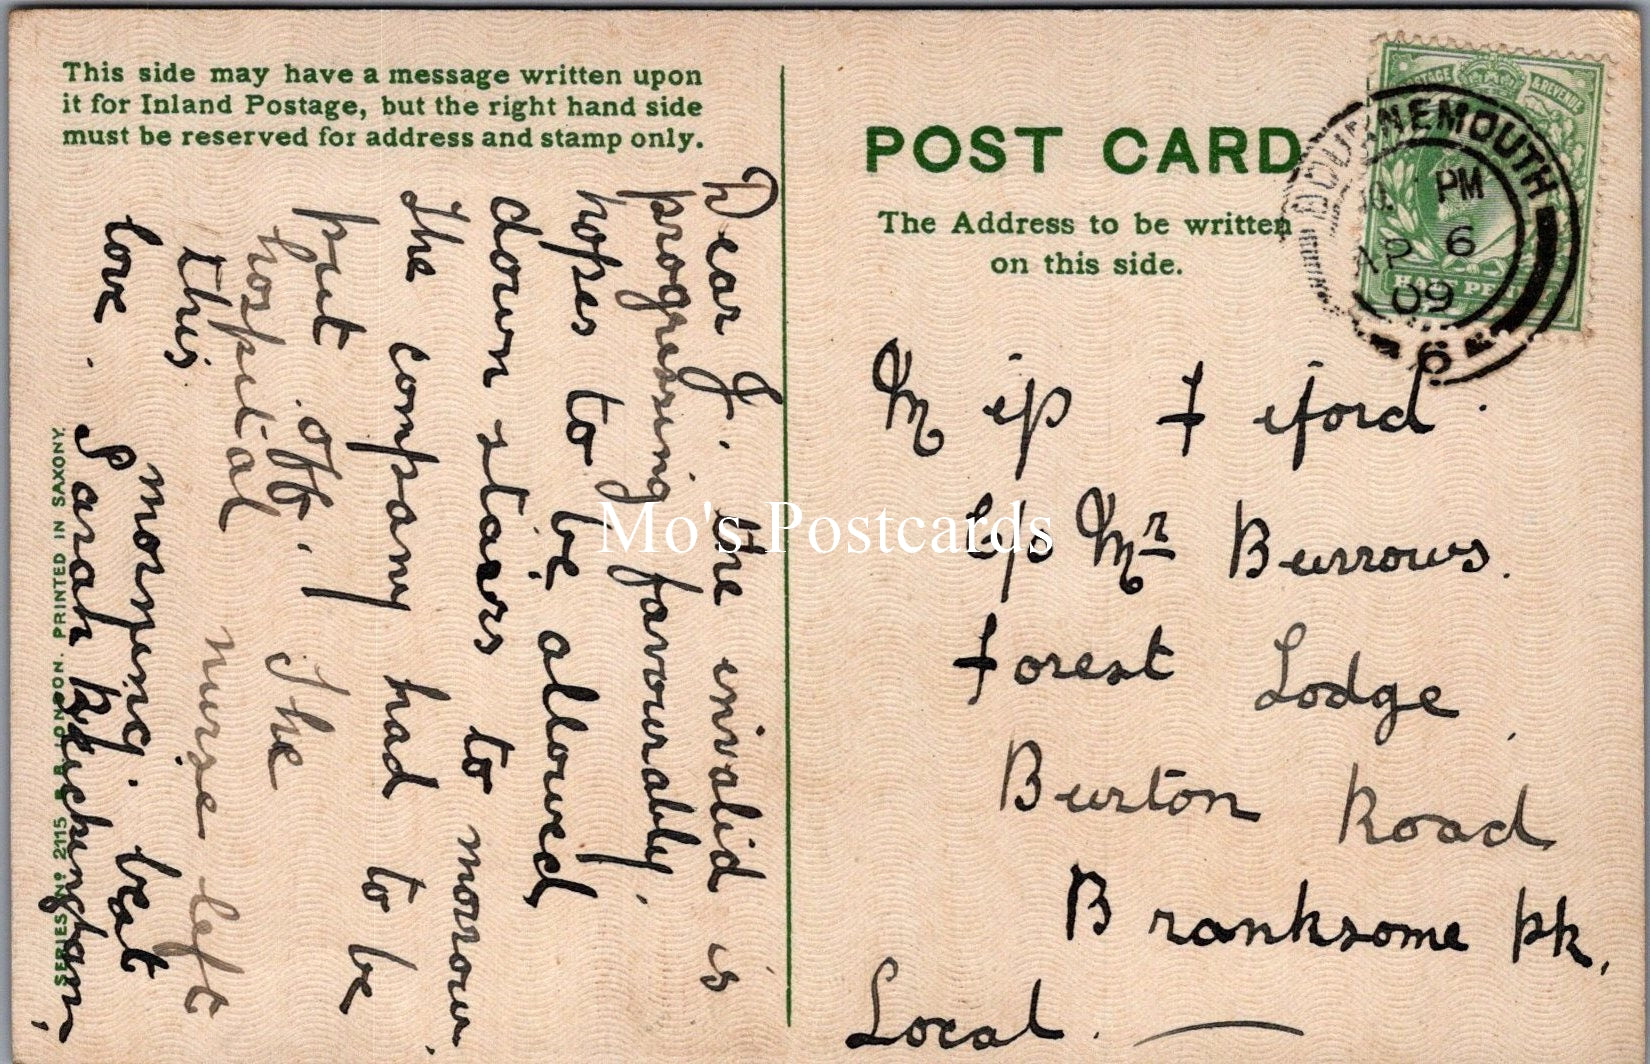 This side may have a message written upon
it for Inland Postage, but the right hand side
must be reserved for address and stamp only.
POST CARD
The Address to be written
on this side.
POSTAGE & REVENUE
HALF PENNY
BOURNEMOUTH
PM
AP 6
09
6
Dear J. the invalid is
progressing favourably,
hopes to be allowed
down stairs to morrow.
The company had to be
put off. The
hospital nurse left
this morning. best
love. Sarah
Miss Fiford.
C/o Mr Burrows.
Forest Lodge
Burton Road
Branksome Pk,
Local.
SERIES No 2115 B.B. LONDON. PRINTED IN SAXONY.
Mo's Postcards